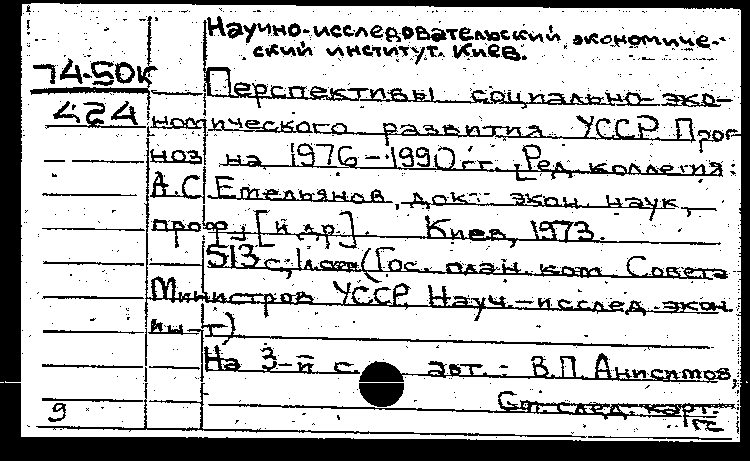 Научно-исследовательский экономиче-
ский институт. Киев.
74-50к
424
Перспективы социально-эко-
номического развития УССР. Прог-
ноз на 1976-1990 гг. [Ред. коллегия:
А.С. Емельянов, докт. экон. наук,
проф., [и др.]. Киев, 1973.
513 с.; (Гос. план. ком. Совета
Министров УССР. Науч.-исслед. экон.
ин-т)
На 3-й с. авт.: В.П. Анисимов,
См. след. карт.
9